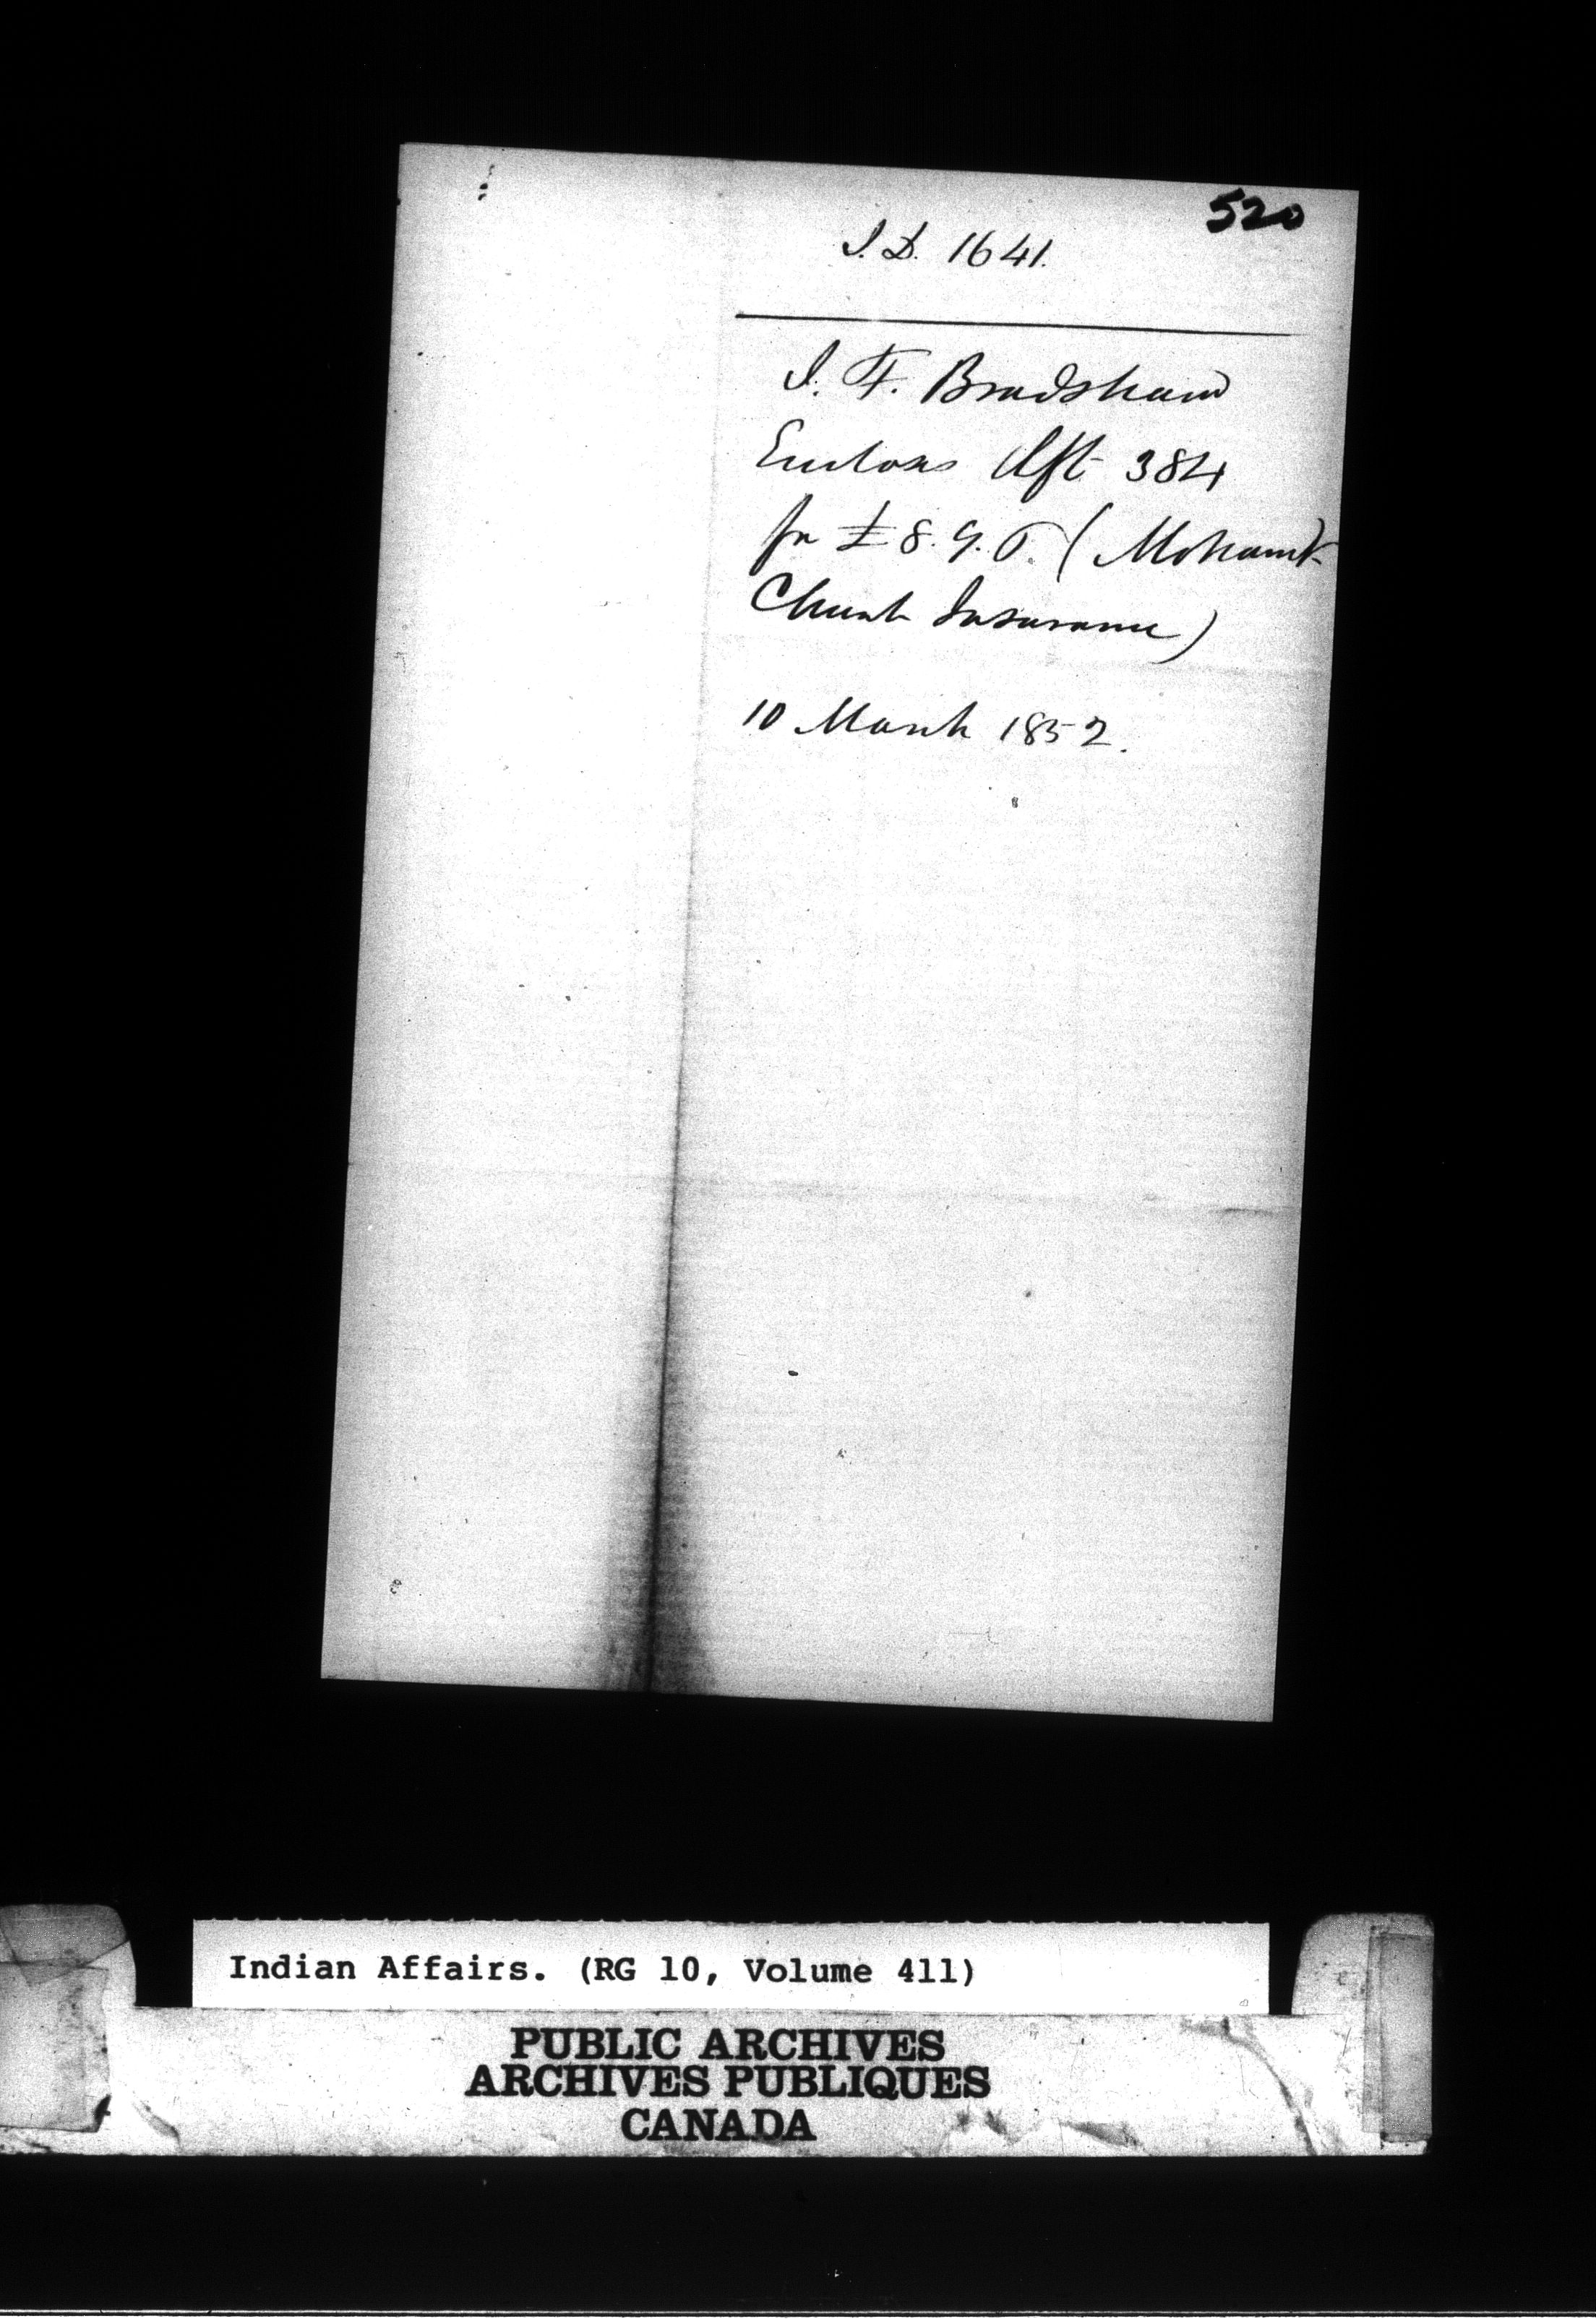 520
I. D. 1641.
I. F. Bradshaw
Encloses dft 384
for £ 8. 9. 0. (Mohawk
Church Insurance)
10 March 1852.
Indian Affairs. (RG 10, Volume 411)
PUBLIC ARCHIVES
ARCHIVES PUBLIQUES
CANADA